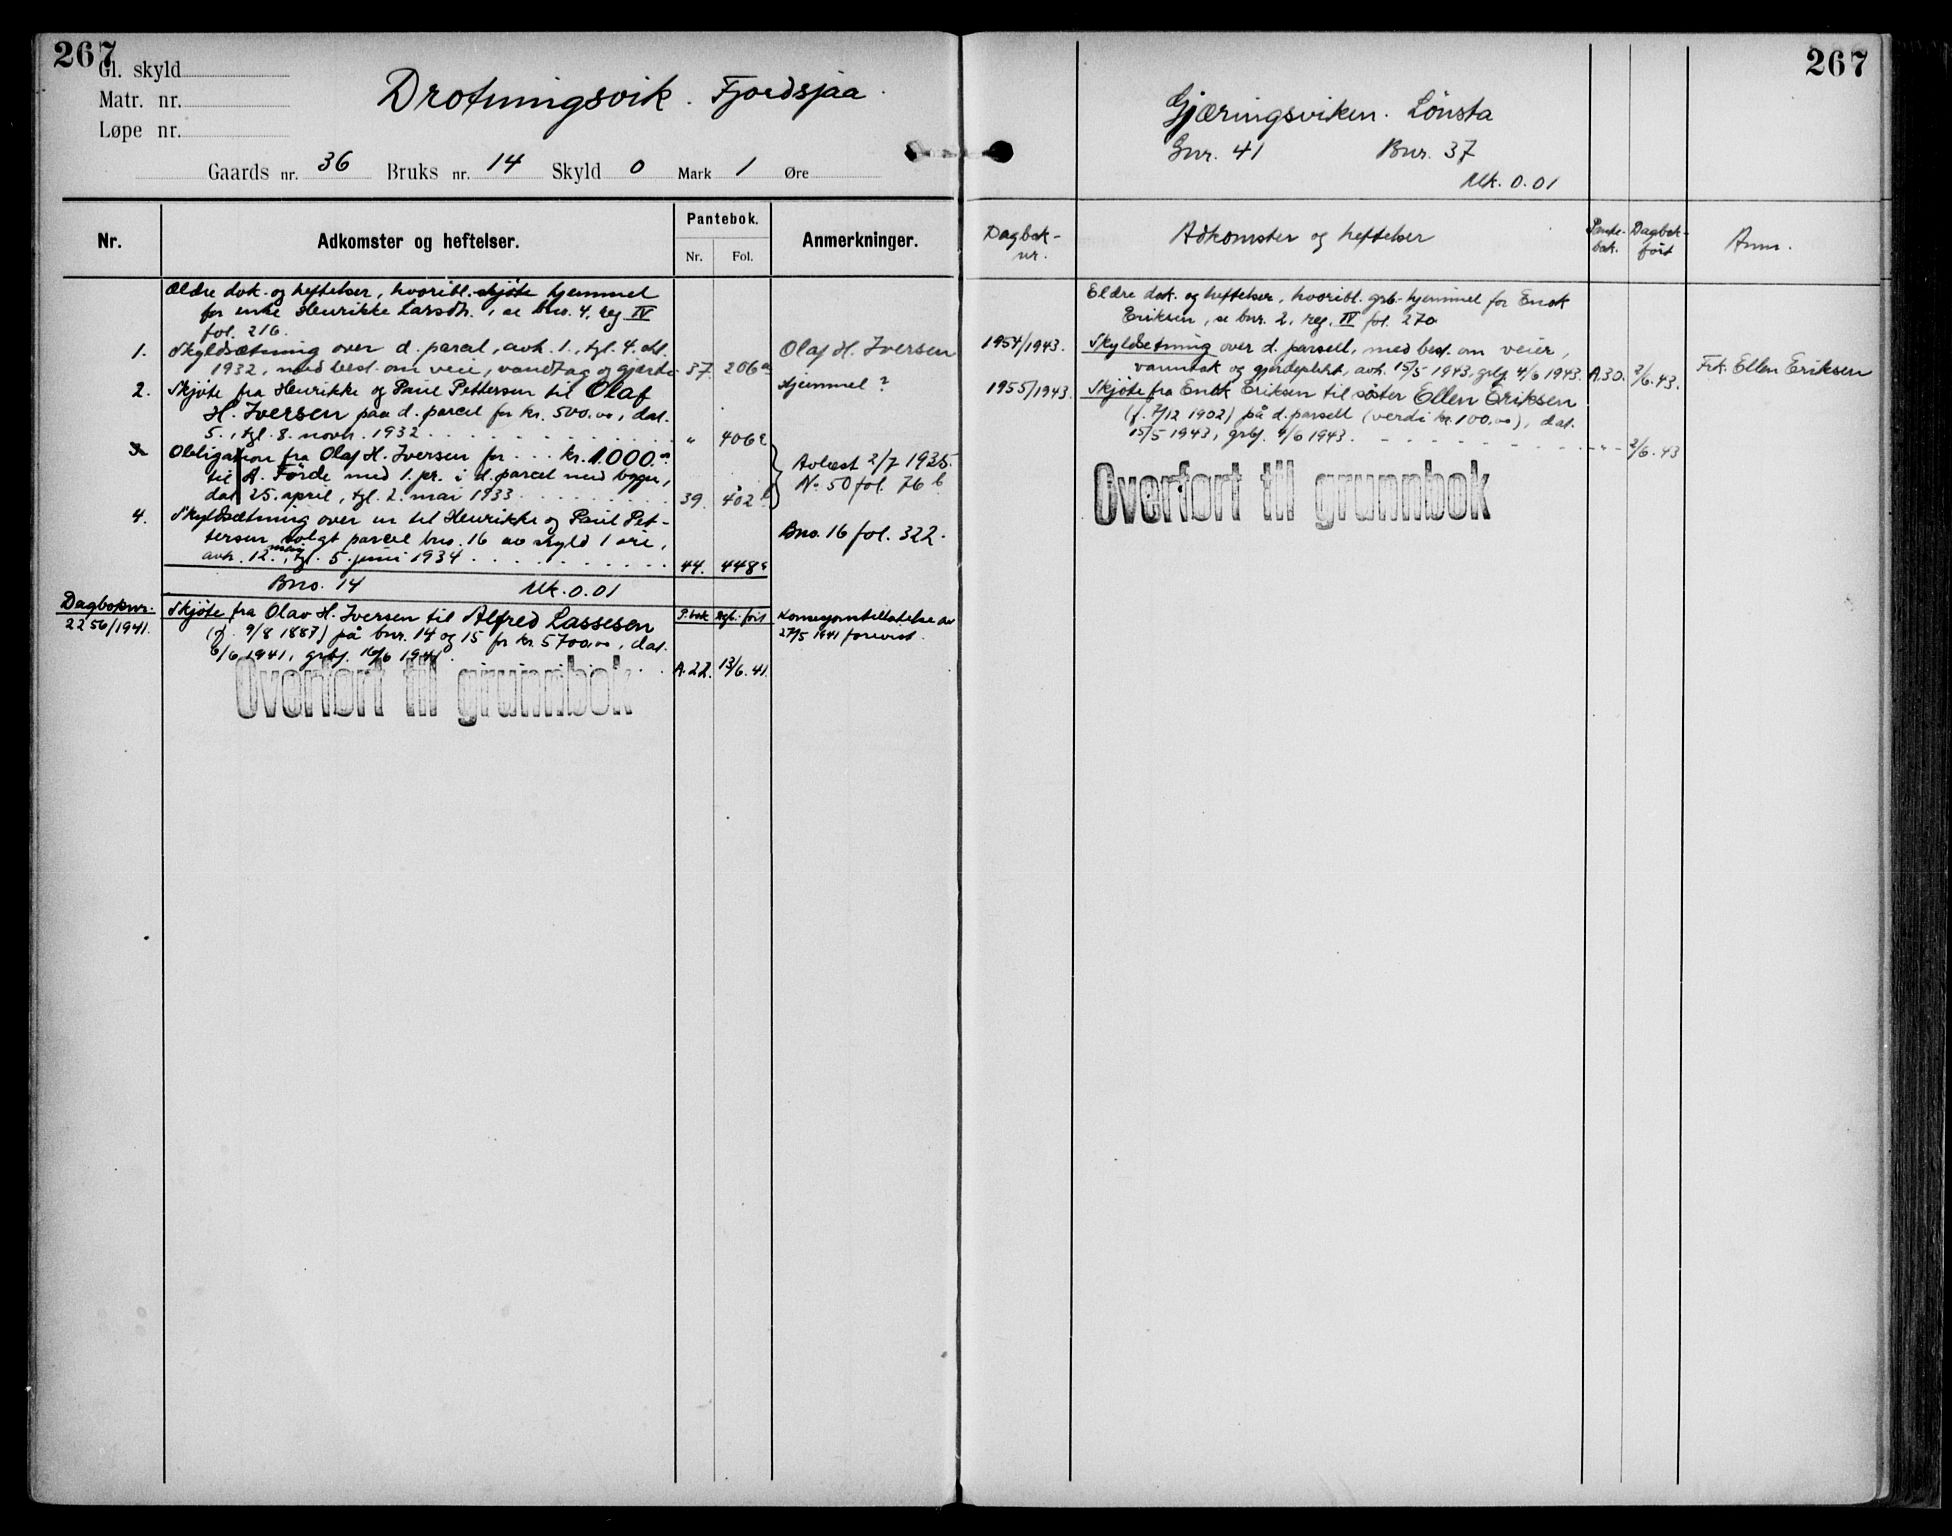 267
Gl. skyld
Matr. nr.
Løpe nr.
Drotningsvik. Fjordsjaa.
Gaards nr. 36 Bruks nr. 14 Skyld 0 Mark 1 Øre
Nr. Adkomster og heftelser. Pantebok. Anmerkninger.
Nr. Fol.
Ældre dok. og heftelser, hvoribl. skjøte hjemmel
for enke Henrikke Larsdtr., se bno. 4, reg IV
fol. 216.
1. Skyldsætning over d. parcel, avh. 1., tgl. 4. okt.
1932, med best. om veie, vandtag og gjærde 37. 206a
Olaf H. Iversen
hjemmel?
2. Skjøte fra Henrikke og Paul Pettersen til Olaf
H. Iversen paa d. parcel for kr. 500.00, dat.
5., tgl. 8. novb. 1932 " 406a
3. Obligation fra Olaf H. Iversen for kr. 1000.00
til A. Førde med 1. pr. i d. parcel med bygn.,
dat. 25. april, tgl. 2. mai 1933 39. 402b
Avlæst 2/7 1935.
N. 50 fol. 76b
4. Skyldsætning over en til Henrikke og Paul Pet-
tersen solgt parcel bno. 16 av skyld 1 øre,
avh. 12. mai, tgl. 5. juni 1934 44. 448a
Bno. 16 fol. 322.
Bno. 14 Mk. 0.01
Dagboknr. P.bok Dgb. ført
2256/1941. Skjøte fra Olav H. Iversen til Alfred Lassesen
(f. 9/8 1887) på bnr. 14 og 15 for kr. 5700,00, dat.
6/6 1941, grbf. 16/6 1941. A.22. 13/6.41.
Konsesjonstillatelse av
27/5 1941 forevist.
Overført til grunnbok
267
Gjæringsviken. Lönsta
Gnr. 41 Bnr. 37
Mk. 0.01
Dagbok-
nr.
Adkomster og heftelser
Pante-
bok.
Dagbok-
ført
Anm.
Eldre dok. og heftelser, hvoribl. grb. hjemmel for Enok
Eriksen, se bnr. 2, reg. IV fol. 270
1954/1943. Skyldsetning over d. parsell, med best. om veier,
vanntak og gjerdeplikt, avh. 15/5 1943, grbf 4/6 1943. A.30. 2/6.43. Frk. Ellen Eriksen
1955/1943. Skjøte fra Enok Eriksen til søster Ellen Eriksen
(f. 7/12 1902) på d. parsell (verdi kr. 100,00), dat.
15/5 1943, grbf. 4/6 1943. - " - 2/6.43
Overført til grunnbok